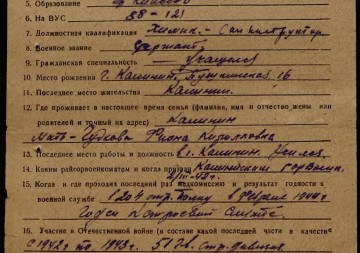 5. Образование
6. На ВУС 58-121
7. Должностная квалификация Химик - Санинструктор.
8. Военное звание Сержант
9. Гражданская специальность учащаяся
10. Место рождения г. Калинин, Пушкинская, 16
11. Последнее место жительства Калинин.
12. Где проживает в настоящее время семья (фамилия, имя и отчество жены или
родителей и точный их адрес) Калинин
Мать - Кирилловна
13. Последнее место работы и должность г. Калинин.
14. Каким райгорвоенкоматом и когда призван Калининским
15. Когда и где проходил последний раз медкомиссию и результат годности к
военной службе в 204 стр. полку в 1944 г
Годен к строевой службе.
16. Участие в Отечественной войне (в составе какой последней части в качестве
с 1942 г. по 1943 г. стр. дивизия.